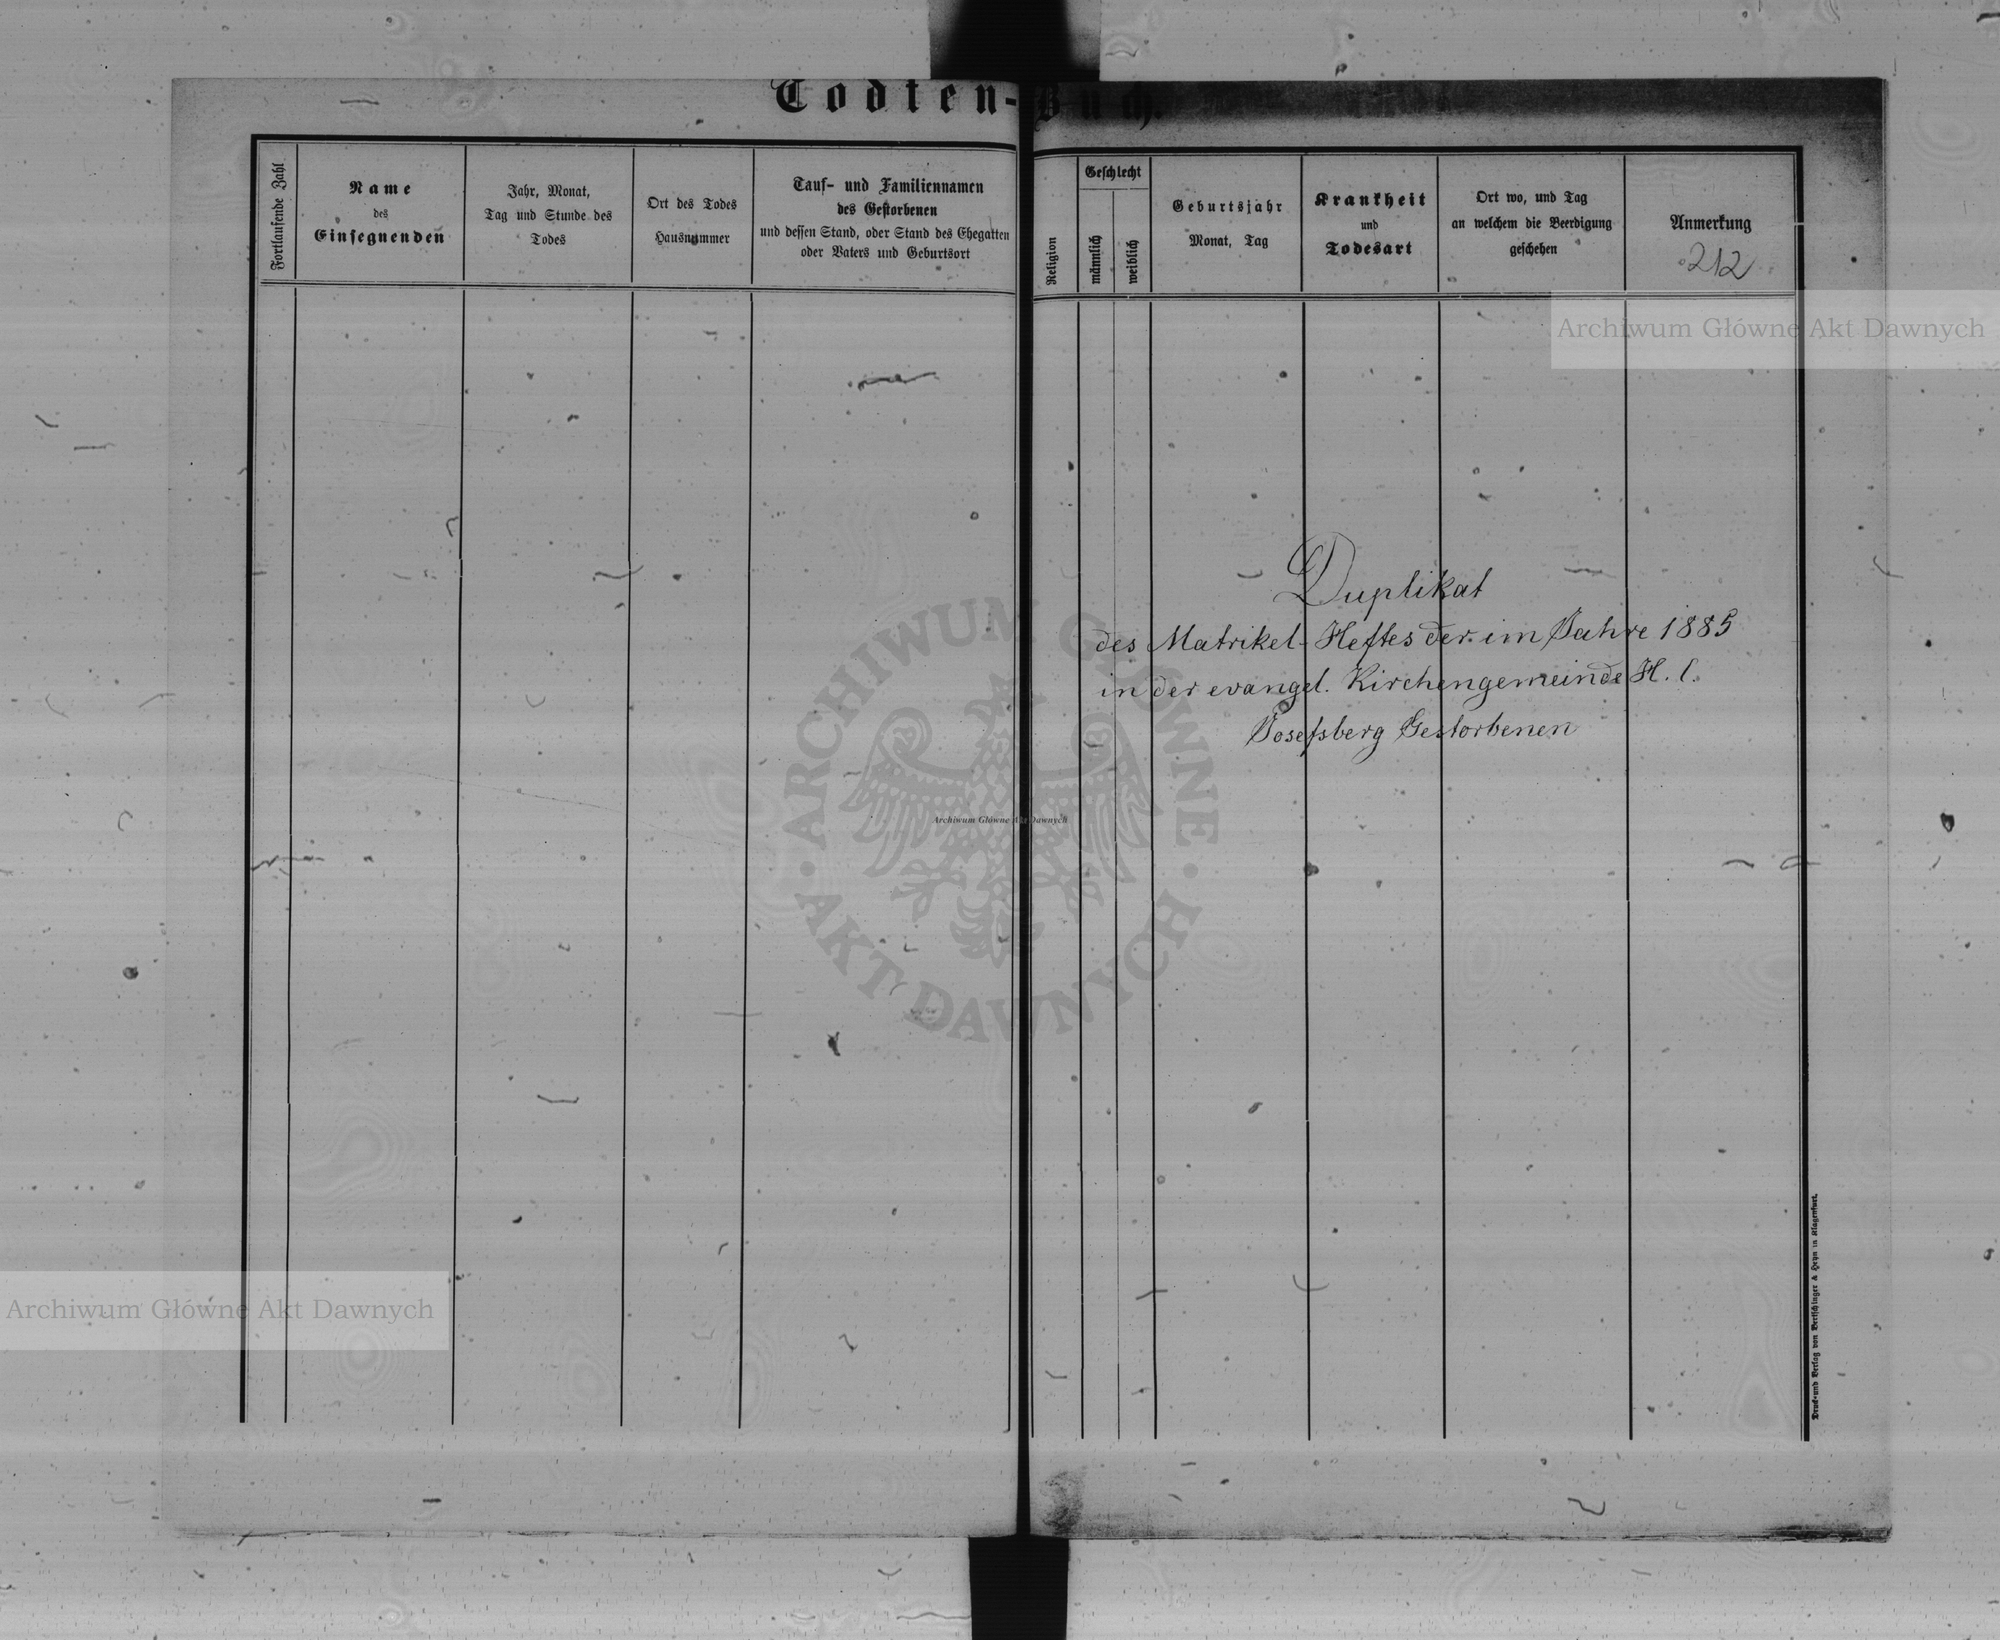 Todten-Buch.
Fortlaufende Zahl
Name
des
Einsegnenden
Jahr, Monat,
Tag und Stunde des
Todes
Ort des Todes
Hausnummer
Tauf- und Familiennamen
des Gestorbenen
und dessen Stand, oder Stand des Ehegatten
oder Vaters und Geburtsort
Religion
Geschlecht
männlich
weiblich
Geburtsjahr
Monat, Tag
Krankheit
und
Todesart
Ort wo, und Tag
an welchem die Beerdigung
geschehen
Anmerkung
212
Archiwum Główne Akt Dawnych
Duplikat
des Matrikel-Heftes der im Jahre 1885
in der evangel. Kirchengemeinde H. C.
Josefsberg Gestorbenen
ARCHIWUM GŁÓWNE
AKT DAWNYCH
Archiwum Główne Akt Dawnych
Archiwum Główne Akt Dawnych
Druk und Verlag von Bertschinger & Heyn in Klagenfurt.